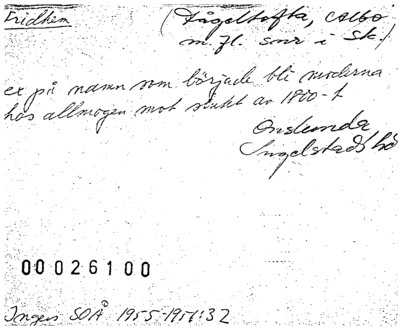 Fridhem
(Fågeltofta, Albo
m.fl. snr i Sk.)
ex på namn som började bli moderna
hos allmogen mot slutet av 1800-t
Onslunda
Ingelstads hd
00026100
Ingers SOÅ 1955-1956:32